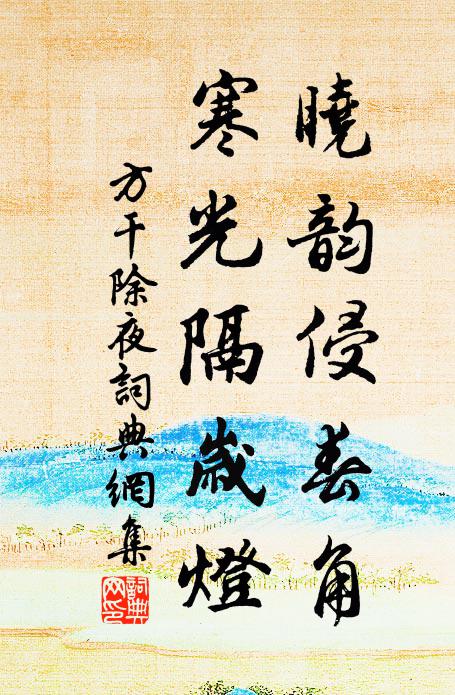 曉韵侵春角
寒光隔歲燈
方干除夜詞典網集
詞典網印